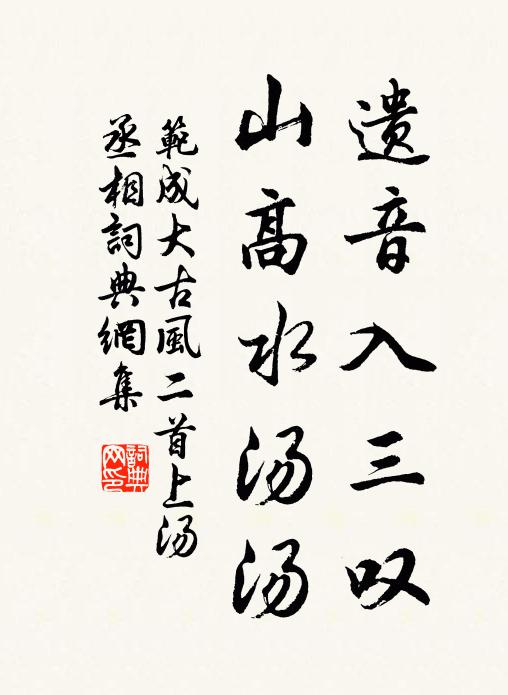 遗音入三叹
山高水汤汤
範成大古風二首上汤
丞相詞典網集
詞典
网印